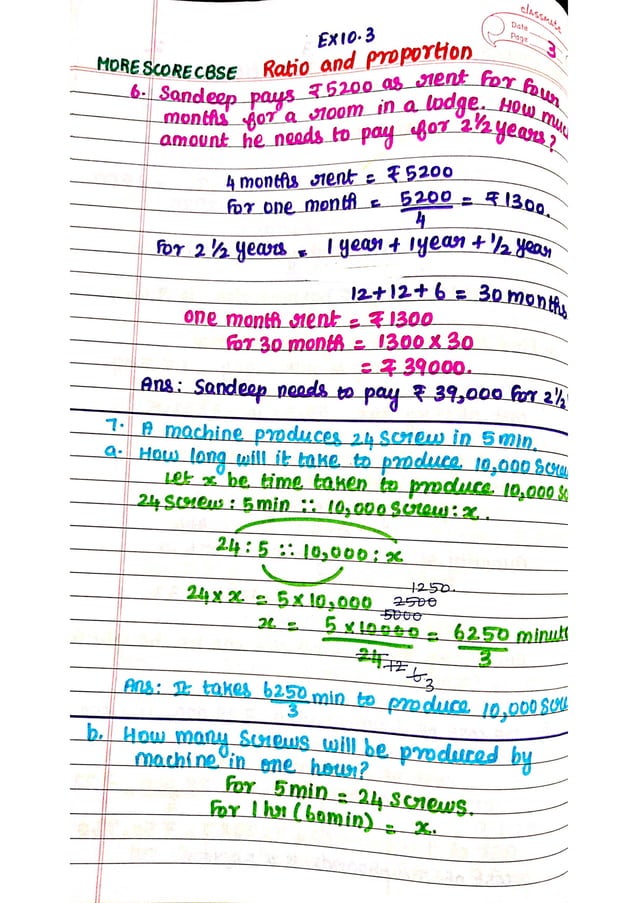 classmate
Date
Page 3
EX10.3
MORESCORECBSE Ratio and proportion
6. Sandeep pays ₹5200 as rent for four
months for a room in a lodge. How muc
amount he needs to pay for 2½ years?
4 months rent = ₹5200
For one month = 5200/4 = ₹1300.
For 2½ years = 1 year + 1 year + ½ year
12+12+6 = 30 months
one month rent = ₹1300
For 30 month = 1300 × 30
= ₹39000.
Ans: Sandeep needs to pay ₹39,000 for 2½
7. A machine produces 24 screw in 5 min.
a. How long will it take to produce 10,000 scre
Let x be time taken to produce 10,000 s
24 screw : 5min :: 10,000 screw : x.
24 : 5 :: 10,000 : x
1250.
24 × x = 5 × 10,000 2500
5000
x = 5 × 10000/24 = 6250/3 minut
12 6 3
Ans: It takes 6250/3 min to produce 10,000 scr
b. How many screws will be produced by
machine in one hour?
For 5min = 24 screws.
For 1 hr (60min) = x.